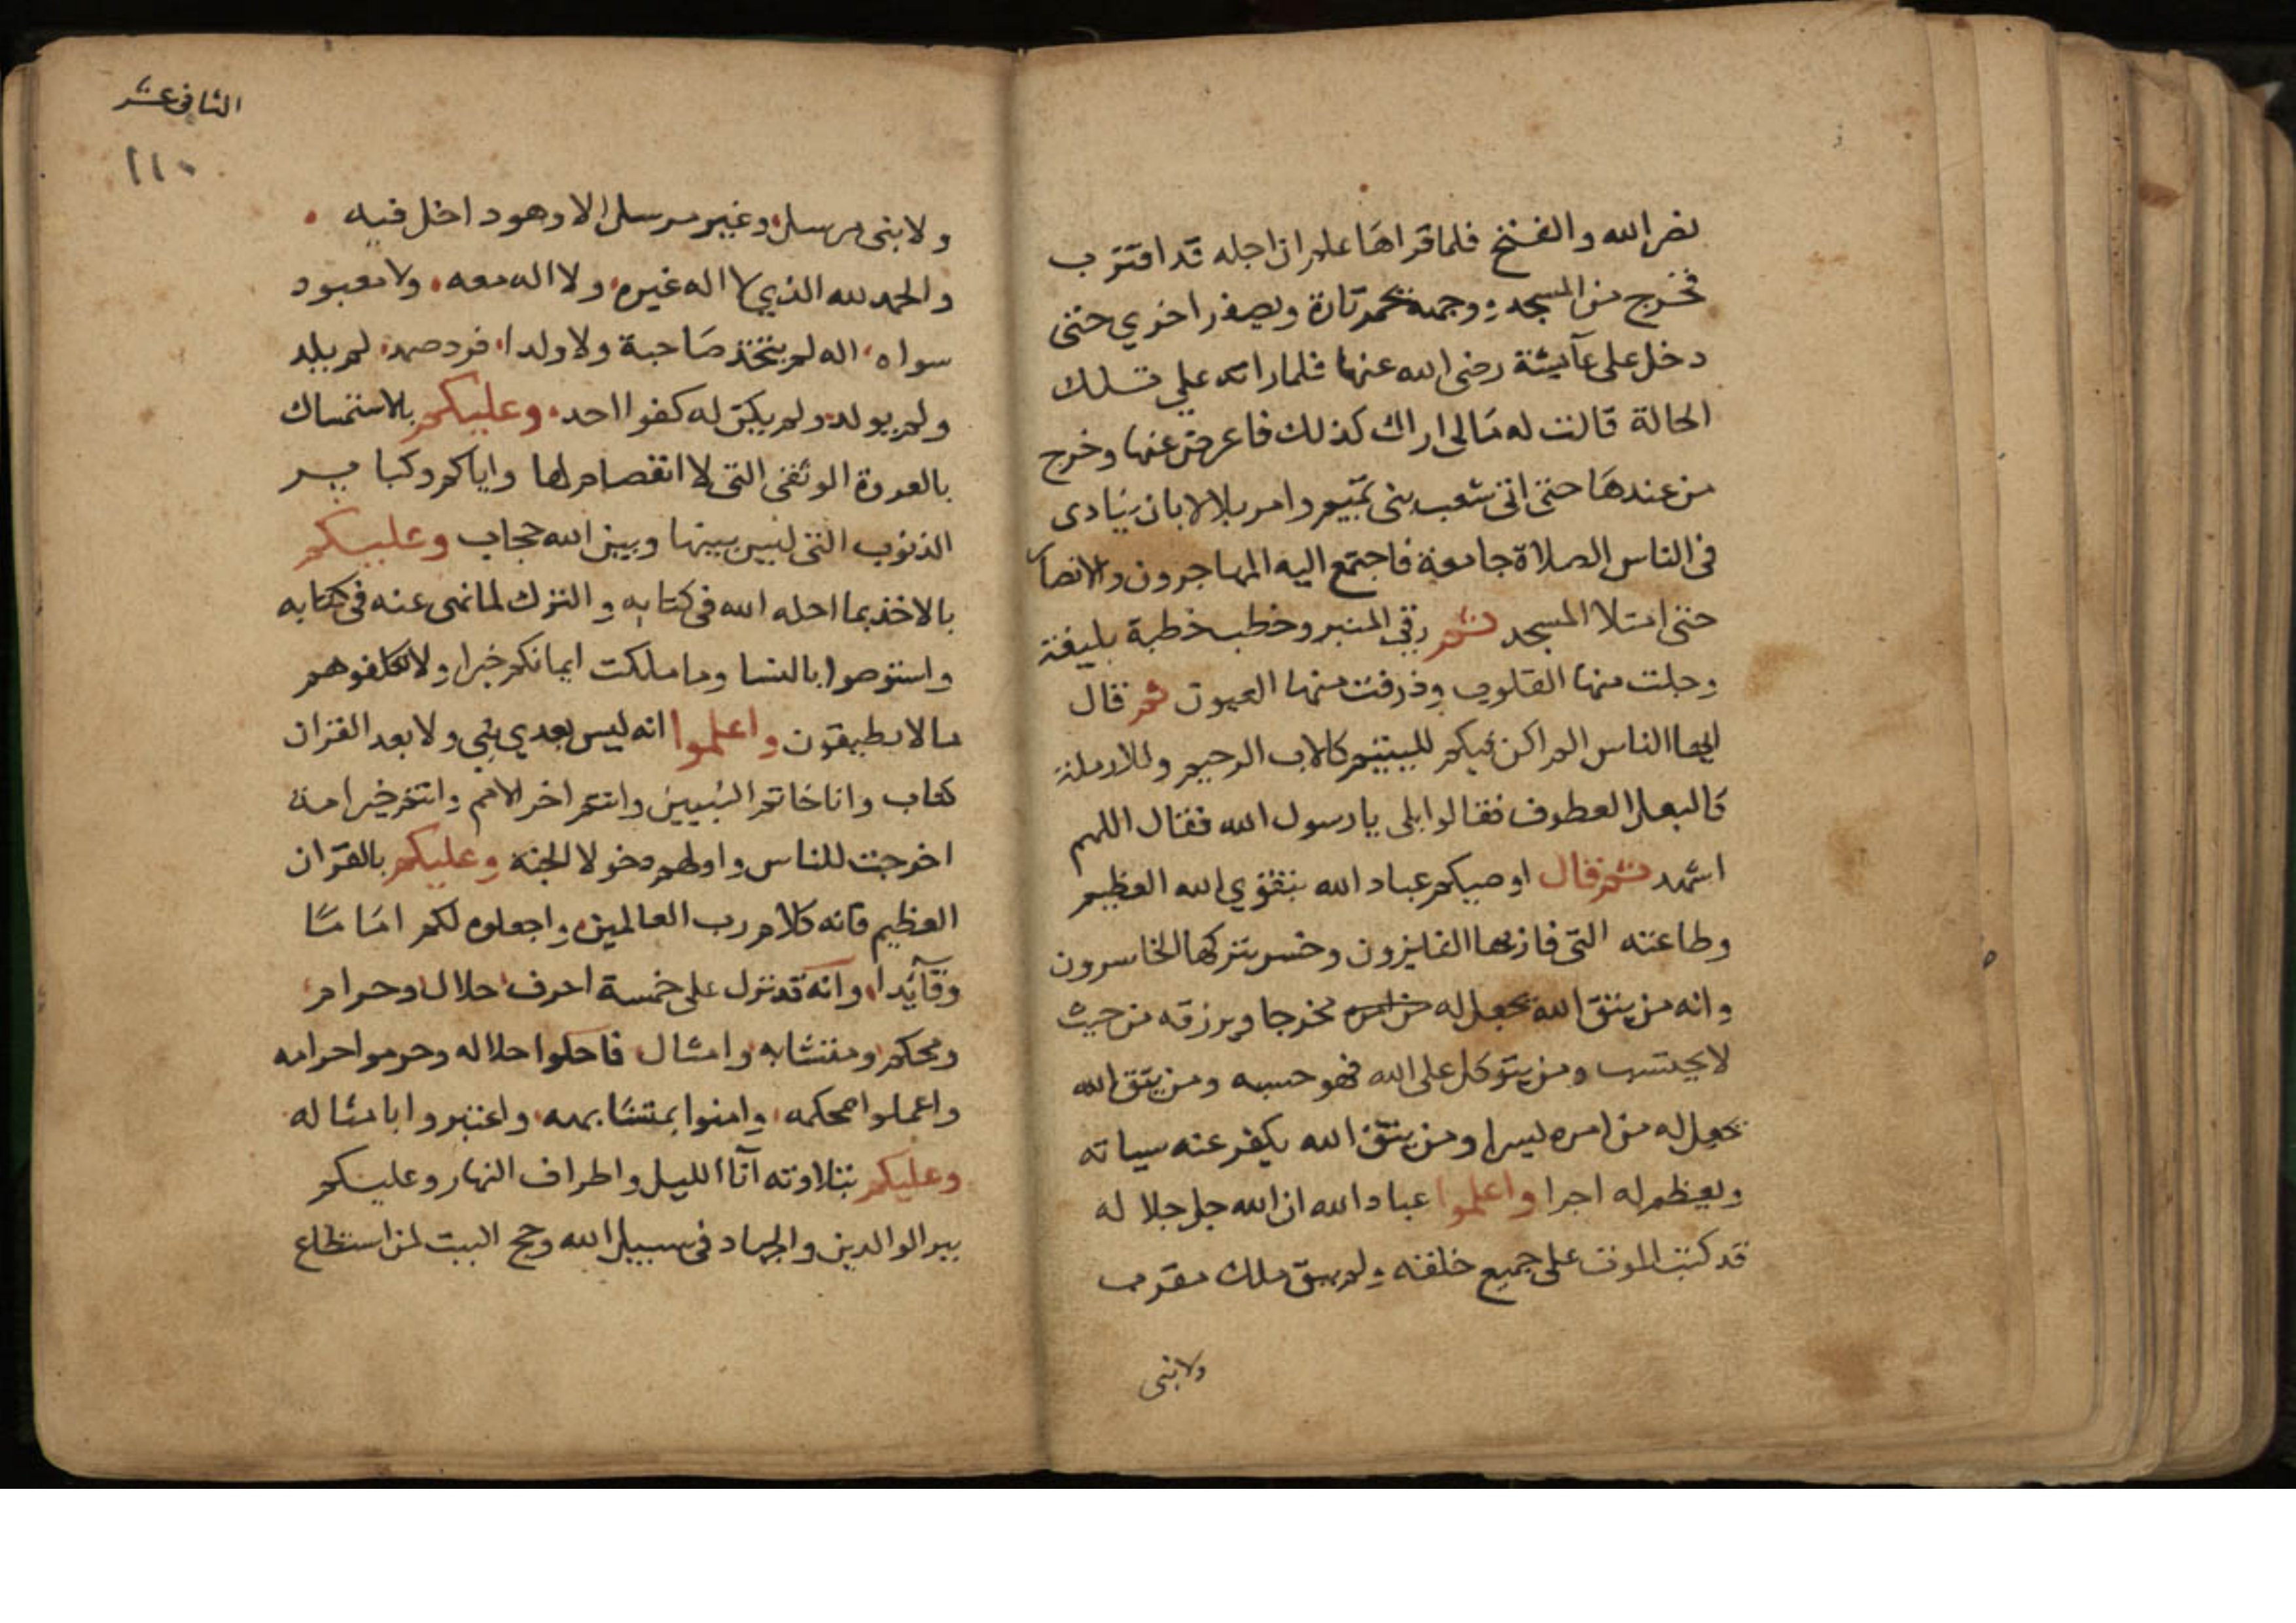 نصر الله والفتح فلما قراها علم ان اجله قد اقترب
فخرج من المسجد ووجهه يحمر تارة ويصفر اخري حتى
دخل على عآيشة رضى الله عنها فلما راته علي تلك
الحالة قالت له مالى اراك كذلك فاعرض عنها وخرج
من عندها حتى اتى شعب بنى تميم وامر بلالا بان ينادى
فى الناس الصلاة جامعة فاجتمع اليه المهاجرون والانصار
حتى امتلا المسجد ثم رقى المنبر وخطب خطبة بليغة
وجلت منها القلوب وذرفت منها العيون ثم قال
ايها الناس الم اكن فيكم لليتيم كالاب الرحيم وللارملة
كالبعل العطوف فقالوا بلى يا رسول الله فقال اللهم
اشهد ثم قال اوصيكم عباد الله بتقوي الله العظيم
وطاعته التى فاز بها الفايزون وخسر بتركها الخاسرون
وانه من يتق الله يجعل له من امره مخرجا ويرزقه من حيث
لا يحتسب ومن يتوكل على الله فهو حسبه ومن يتق الله
يجعل له من امره يسرا ومن يتق الله يكفر عنه سياته
ويعظم له اجرا واعلموا عباد الله ان الله جل جلاله
قد كتب الموت على جميع خلقه ولم يبق ملك مقرب
ولا نبى
الثانى عشر
١١٠
ولا نبى مرسل وغير مرسل الا وهو داخل فيه
والحمد لله الذي لا اله غيره ولا اله معه ولا معبود
سواه اله لم يتخذ صاحبة ولا ولدا فرد صمد لم يلد
ولم يولد ولم يكن له كفوا احد وعليكم بالاستمساك
بالعروة الوثقى التى لا انفصام لها واياكم وكباير
الذنوب التى ليس بينها وبين الله حجاب وعليكم
بالاخذ بما احله الله فى كتابه والترك لما نهى عنه فى كتابه
واستوصوا بالنسا وما ملكت ايمانكم خيرا ولا تكلفوهم
مالا يطيقون واعلموا انه ليس بعدي نبي ولا بعد القران
كتاب وانا خاتم النبيين وانتم اخر الامم وانتم خير امة
اخرجت للناس واولهم دخولا الجنة وعليكم بالقرآن
العظيم فانه كلام رب العالمين واجعلوه لكم اماما
وقآئدا وانه قد نزل على خمسة احرف حلال وحرام
ومحكم ومتشابه وامثال فاحلوا حلاله وحرموا حرامه
واعملوا بمحكمه وامنوا بمتشابهه واعتبروا بامثاله
وعليكم بتلاوته آنا الليل واطراف النهار وعليكم
ببر الوالدين والجهاد فى سبيل الله وحج البيت لمن استطاع